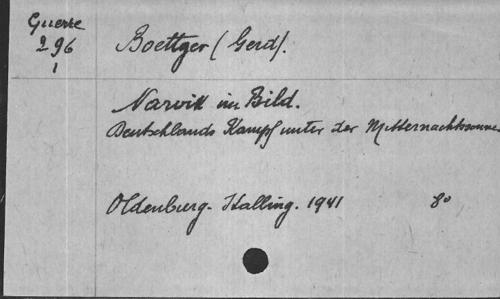 Guerre
296
1
Boettger (Gerd).
Narvik im Bild.
Deutschlands Kampf unter der Mitternachtssonne
Oldenburg. Stalling. 1941 8°